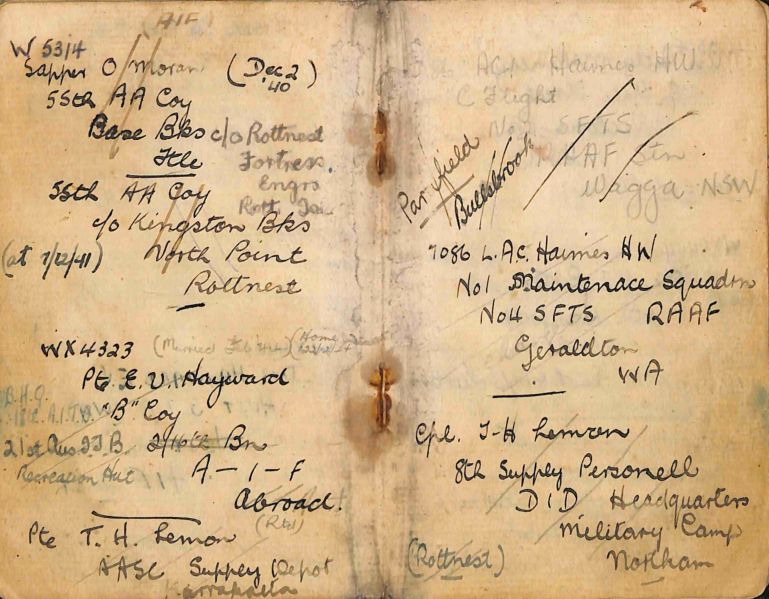 (AIF)
W 5314
Sapper O Moran (Dec 2
40)
55th AA Coy
Base Bks c/o Rottnest
Ftle Fortress
Engrs
55th AA Coy Rott Isl
c/o Kingston Bks
(at 7/12/41) North Point
Rottnest
WX4323 (Married Feb
Pte E. V. Hayward
B.H.Q.
"B" Coy
21st Aus I.T.B. 2/16th Bn
Recreation Hut A-I-F
Abroad!
Pte T. H. Lemon
AASC Supply Depot
Karrakatta
AC1 Haimes HW
C Flight
No SFTS
RAAF Stn
Wagga NSW
Parafield
Bullsbrook
7086 L.AC. Haimes HW
No1 Maintenace Squadrn
No4 SFTS RAAF
Geraldton
WA
Cpl. T-H Lemon
8th Supply Personell
DID Headquarters
Military Camp
(Rottnest) Northam